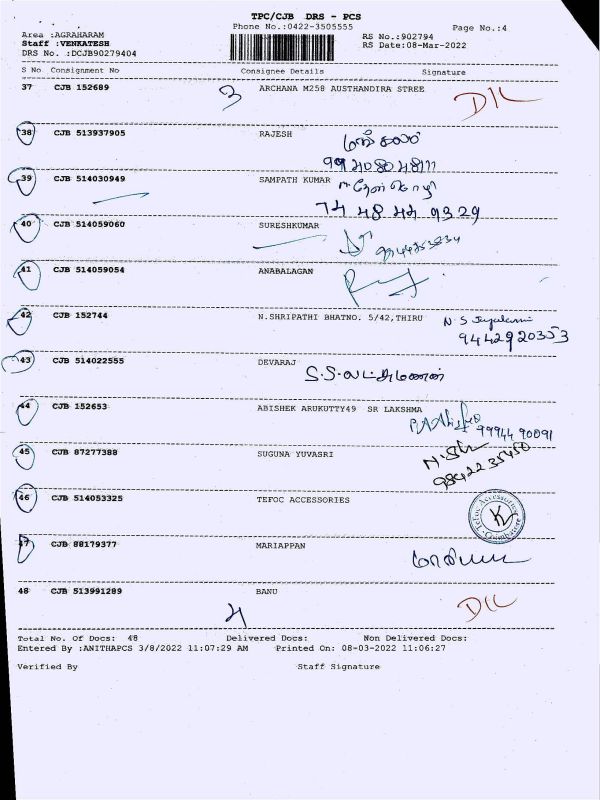 TPC/CJB DRS - PCS
Phone No.:0422-3505555
Page No.:4
Area :AGRAHARAM
RS No.:902794
Staff :VENKATESH
RS Date:08-Mar-2022
DRS No. :DCJB90279404
S No Consignment No Consignee Details Signature
37 CJB 152689 3 ARCHANA M258 AUSTHANDIRA STREE
38 CJB 513937905 RAJESH
39 CJB 514030949 SAMPATH KUMAR
74 48 44 9329
40 CJB 514059060 SURESHKUMAR
41 CJB 514059054 ANABALAGAN
42 CJB 152744 N.SHRIPATHI BHATNO. 5/42,THIRU
9442920353
43 CJB 514022555 DEVARAJ
44 CJB 152653 ABISHEK ARUKUTTY49 SR LAKSHMA
99944 90091
45 CJB 87277388 SUGUNA YUVASRI
98422 35450
46 CJB 514053325 TEFOC ACCESSORIES
Tefoc Accessories
Coimbatore
47 CJB 88179377 MARIAPPAN
48 CJB 513991289 BANU
Total No. Of Docs: 48 Delivered Docs: Non Delivered Docs:
Entered By :ANITHAPCS 3/8/2022 11:07:29 AM Printed On: 08-03-2022 11:06:27
Verified By Staff Signature